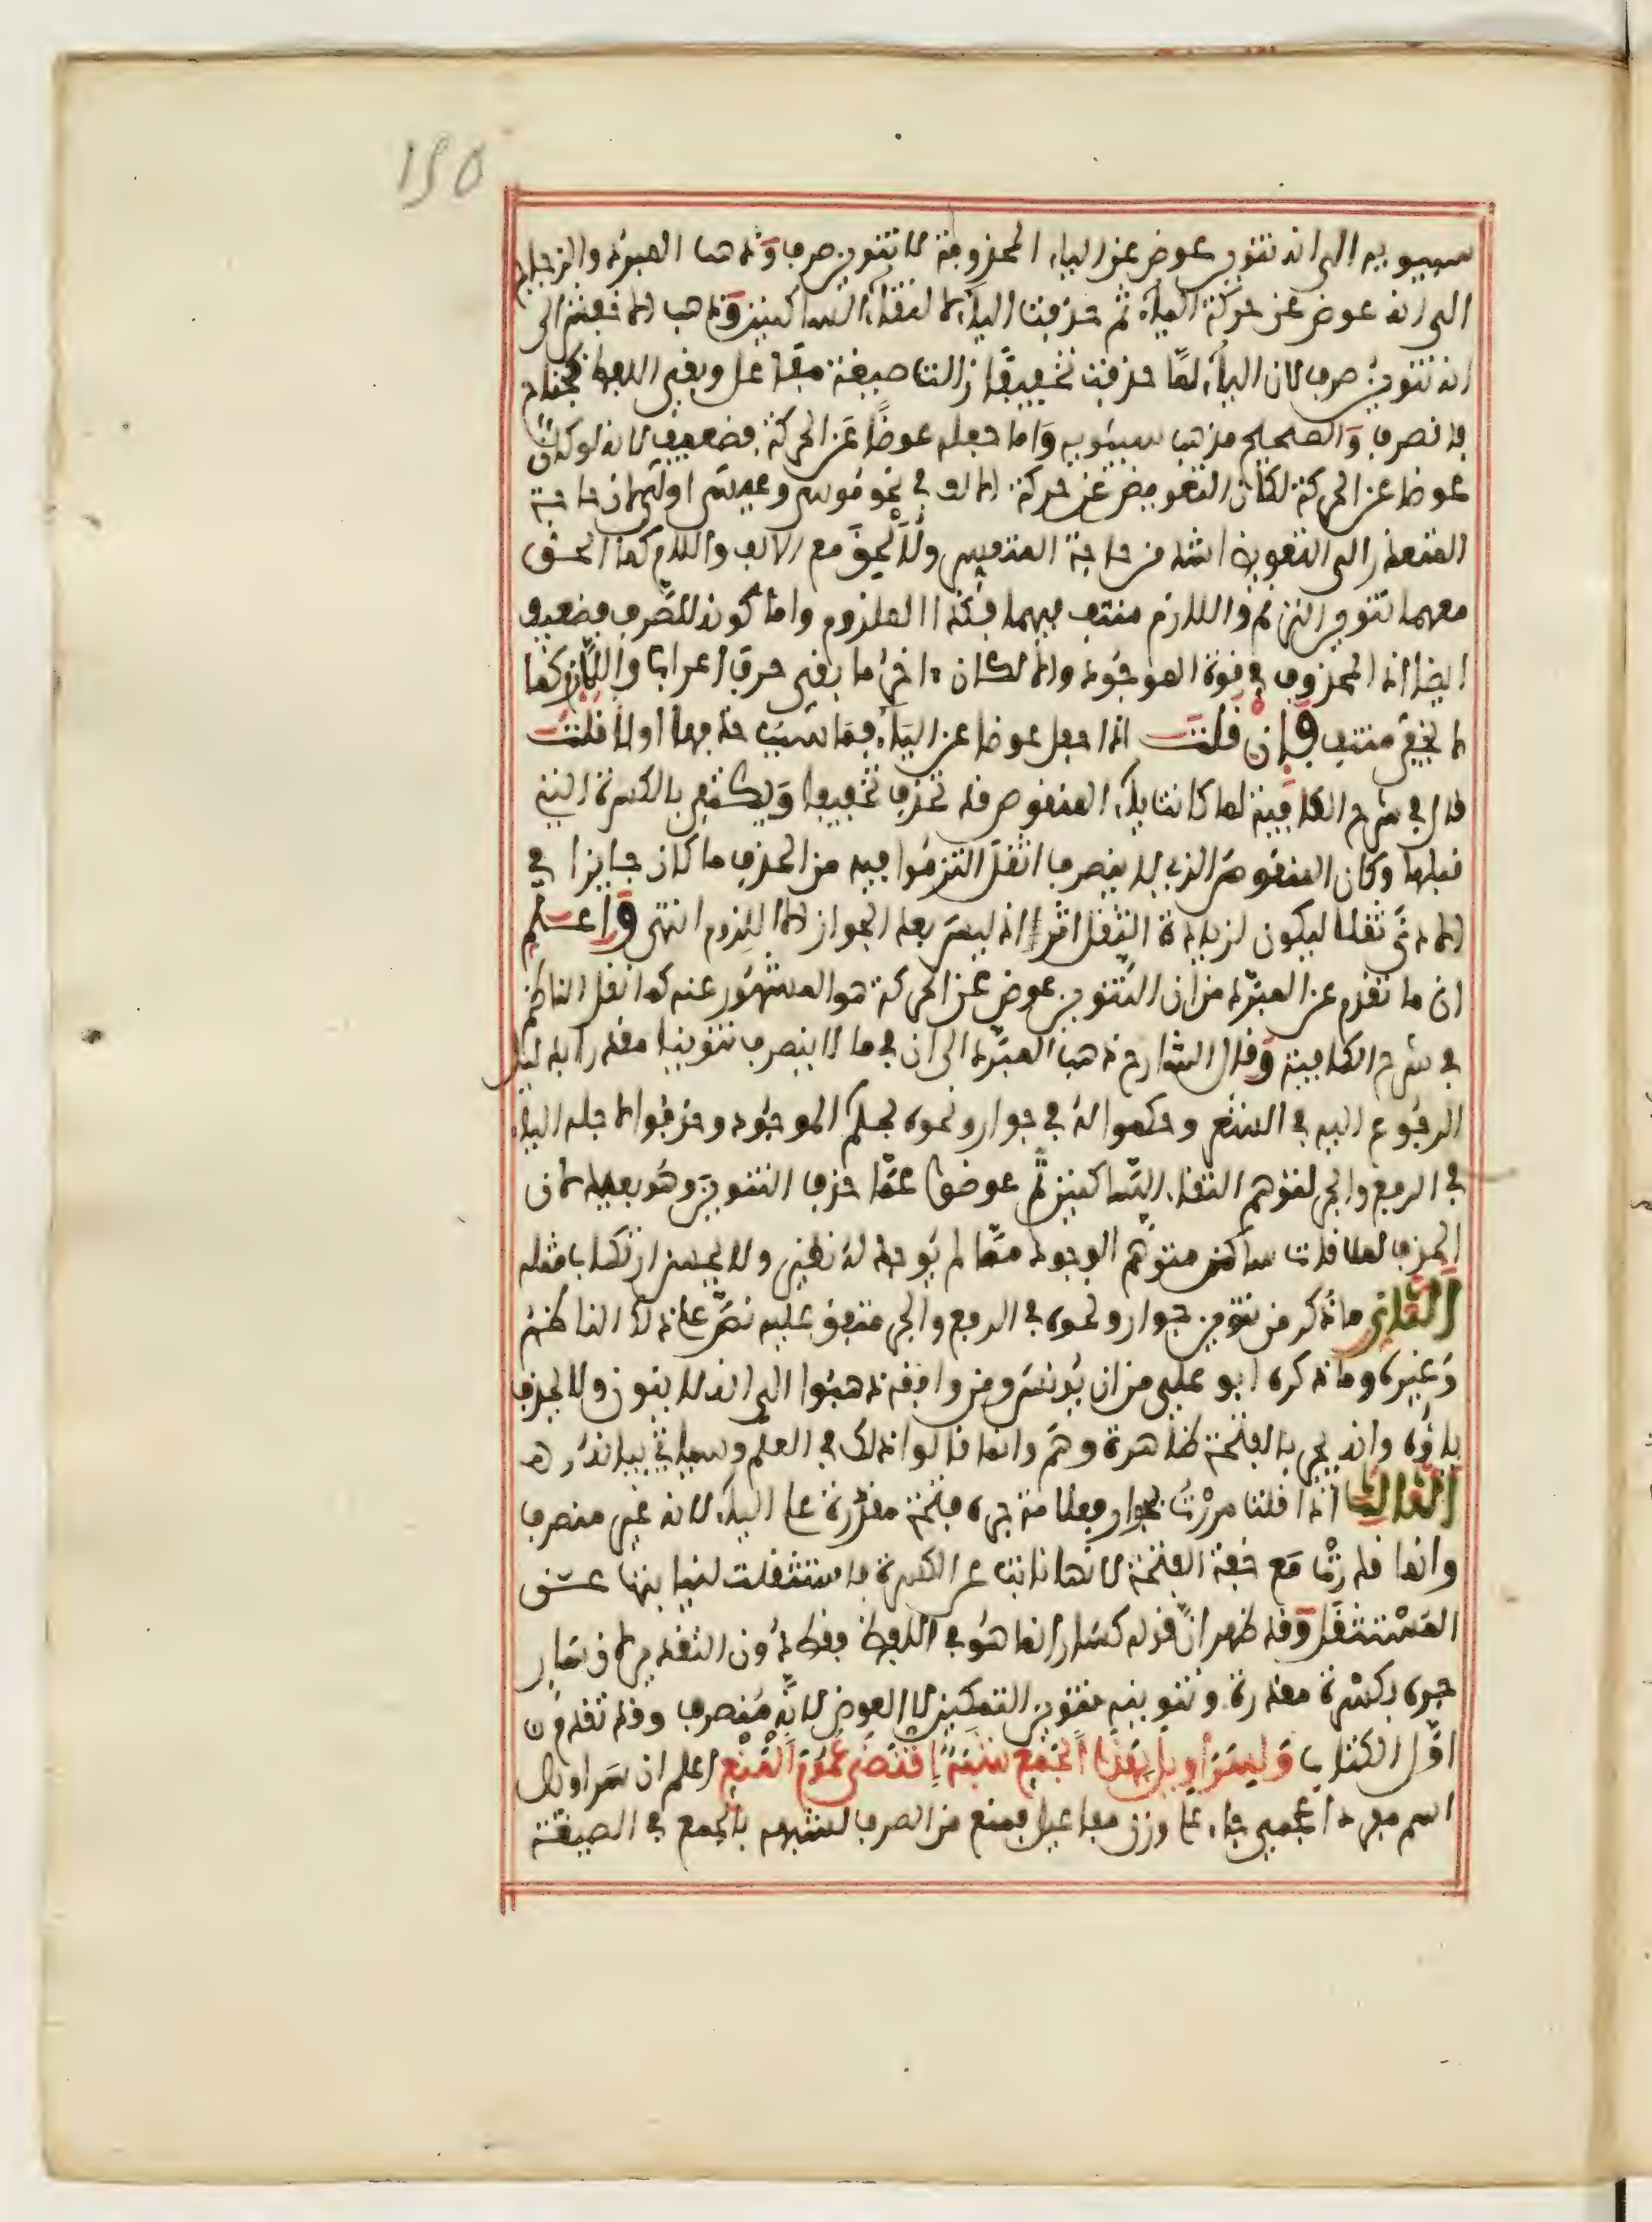 150
سيبويه الى انه تنوين عوض عن الياء المحذوفة لا تنوين صرف وذهب المبرد والزجاج
الى انه عوض عن حركة الياء ثم حذفت الياء لالتقاء الساكنين وذهب الاخفش الى
انه تنوين صرف لان الياء لما حذفت تخفيفا زالت صيغة مفاعل وبقي اللفظ كجناح
فانصرف والصحيح مذهب سيبويه واما جعله عوضا عن الحركة فضعيف لانه لو كان
عوضا عن الحركة لكان التعويض عن حركة الالف في نحو موسى وعيسى اولى لان حاجة
المتعذر الى التعويض اشد من حاجة المتعسر ولالحق مع الالف واللام كما الحق
معهما تنوين الترنم واللازم منتف فيهما فكذا الملزوم واما كونه للصرف فضعيف
ايضا اذ المحذوف في قوة الموجود والا لكان اخر ما بقي حرف اعراب واللازم كما
لا يخفى منتف فإن قلت اذا جعل عوضا عن الياء فما سبب حذفها اولا قلت
قال في شرح الكافية لما كانت ياء المنقوص قد تحذف تخفيفا ويكتفى بالكسرة التي
قبلها وكان المنقوص الذي لا ينصرف اثقل التزموا فيه من الحذف ما كان جايزا في
الادنى ثقلا ليكون لزيادة الثقل اثر اذ ليس بعد الجواز الا اللزوم انتهى واعلم
ان ما تقدم عن المبرد من ان التنوين عوض عن الحركة هو المشهور عنه كما نقل الناظم
في شرح الكافية وقال الشارح ذهب المبرد الى ان في ما لا ينصرف تنوينا مقدرا بدليل
الرجوع اليه في الشعر وحكموا له في جوار ونحوه بحكم الموجود وحذفوا لاجله الياء
في الرفع والجر لتوهم التقاء الساكنين ثم عوضوا عما حذف التنوين وهو بعيد لان
الحذف لملاقات ساكن متوهم الوجود مما لم يوجد له نظير ولا يحسن ارتكاب مثله
الثاني ما ذكر من تنوين جوار ونحوه في الرفع والجر متفق عليه نص على ذلك الناظم
وغيره وما ذكره ابو علي من ان يونس ومن وافقه ذهبوا الى انه لا ينون ولا يحذف
ياؤه وانه يجر بالفتحة ظاهرة وهم وانما قالوا ذلك في العلم وسياتي بيانه اه
الثالث اذا قلت مررت بجوار فعلامة جره فتحة مقدرة على الياء لانه غير منصرف
وانما قدرت مع خفة الفتحة لانها نابت عن الكسرة فاستثقلت لنيابتها عن
المستثقل وقد ظهر ان قوله كسار انما هو في اللفظ فقط دون التقدير لان سار
جره بكسرة مقدرة وتنوينه تنوين التمكين لا العوض لانه منصرف وقد تقدم
اول الكتاب ولسراويل بهذا الجمع شبه اقتضى عموم المنع اعلم ان سراويل
اسم مفرد اعجمي جاء على وزن مفاعيل فمنع من الصرف لشبهه بالجمع في الصيغة